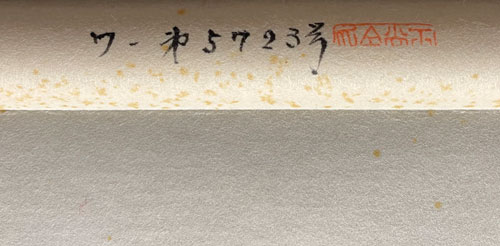 ワ-第5723号